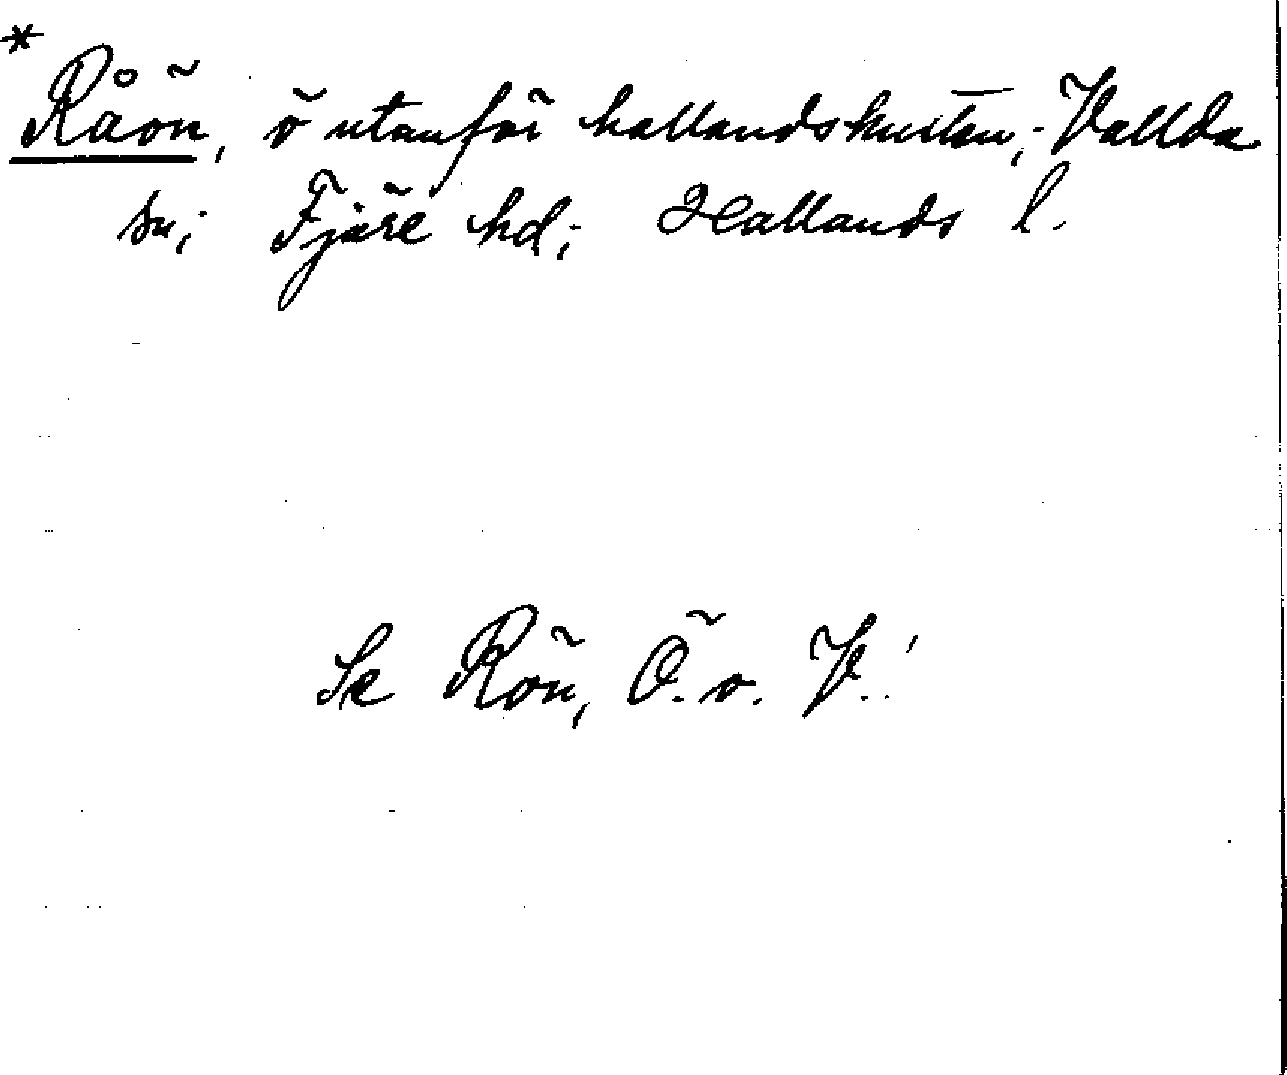 *
Råön, ö utanför hallandskusten; Vallda
sn; Fjäre hd; Hallands l.
Se Rön, Ö. o. V.!